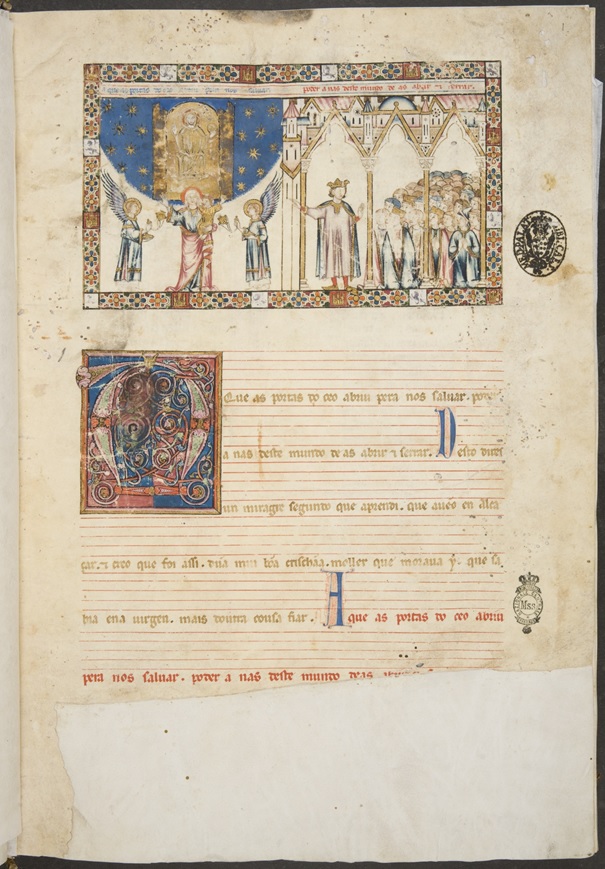 que as portas do ceo abriu pera nos saluar
poder a nas deste mundo de as abrir ⁊ serrar.
Que as portas do ceo abriu pera nos saluar. poder
a nas deste mundo de as abrir ⁊ serrar. Desto direi
un miragre segundo que aprendi. que aueo en alca
çar. ⁊ creo que foi assi. dũa mui bõa crischãa. moller que moraua y. que sa
bia ena uirgen. mais doutra cousa fiar. A que as portas do ceo abriu
pera nos saluar. poder a nas deste mundo deas
Mss